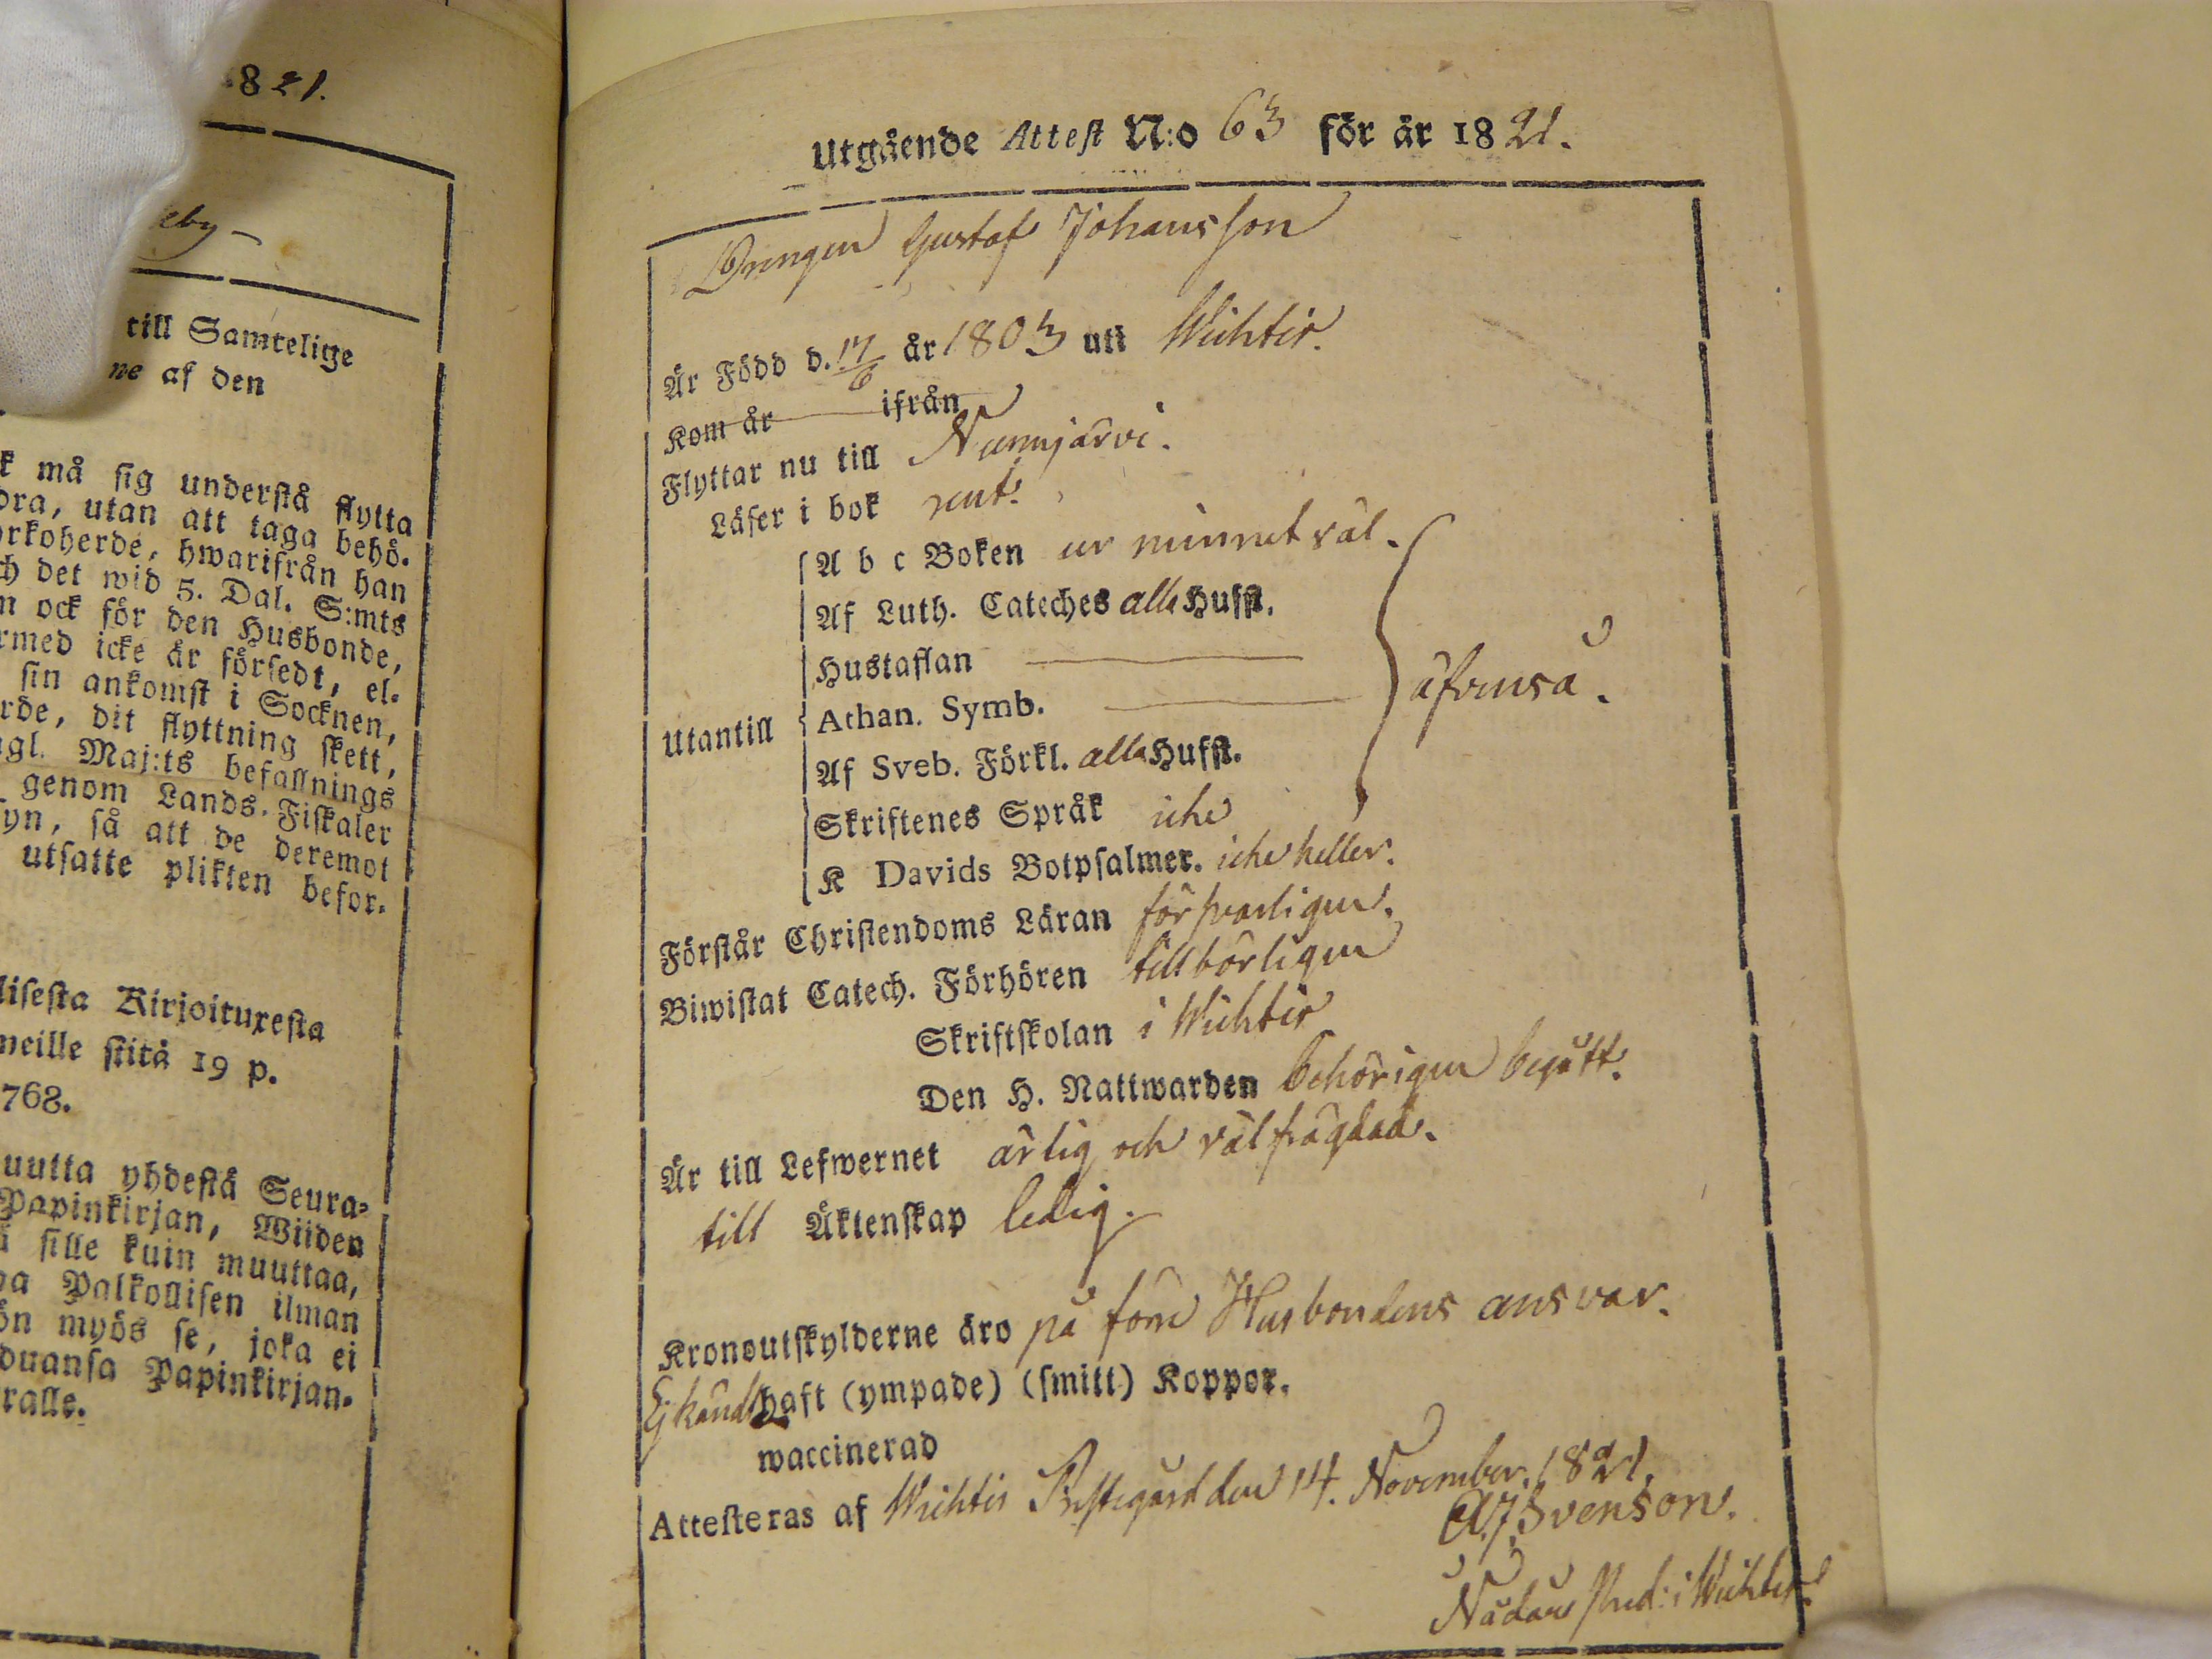 821.
eby
till Samtelige
ne af den
k må sig understå flytta
dra, utan att taga behö-
rkoherde, hwarifrån han
ch det wid 5. Dal. S:mts
n ock för den Husbonde,
rmed icke är försedt, el-
sin ankomst i Socknen,
rde, dit flyttning skett,
ngl. Maj:ts befallnings
genom Lands-Fiskaler
yn, så att de deremot
utsatte plikten befor-
lisesta Kirjoituxesta
neille stitä 19 p.
768.
uutta yhdestä Seura-
Papinkirjan, Wiiden
ä sille kuin muuttaa,
na Palkollisen ilman
ön myös se, joka ei
duansa Papinkirjan-
ralle.
Utgående Attest N:o 63 för år 1821.
Drengen Gustaf Johansson
Är Född d. 17/6 år 1803 uti Wichtis.
Kom år ifrån
Flyttar nu till Nummjärvi.
Läser i bok rent.
A b c Boken ur minnet väl.
Af Luth. Cateches alla Hufst.
Hustaflan
Athan. Symb.
Utantill
äfvenså.
Af Sveb. Förkl. alla Hufst.
Skriftenes Språk icke
K Davids Botpsalmer. icke heller.
Förstår Christendoms Läran försvarligen.
Biwistat Catech. Förhören tillbörligen
Skriftskolan i Wichtis
Den H. Nattwarden behörigen begått.
Är till Lefwernet ärlig och välfrägdad.
till Äktenskap ledig.
Kronoutskylderne äro på förre Husbondens ansvar.
Ej kändt haft (ympade) (smitt) Koppor.
waccinerad
Attesteras af Wichtis Prestegård den 14. November. 1821.
A. J. Svenson.
Nådårs Pred: i Wichtis.